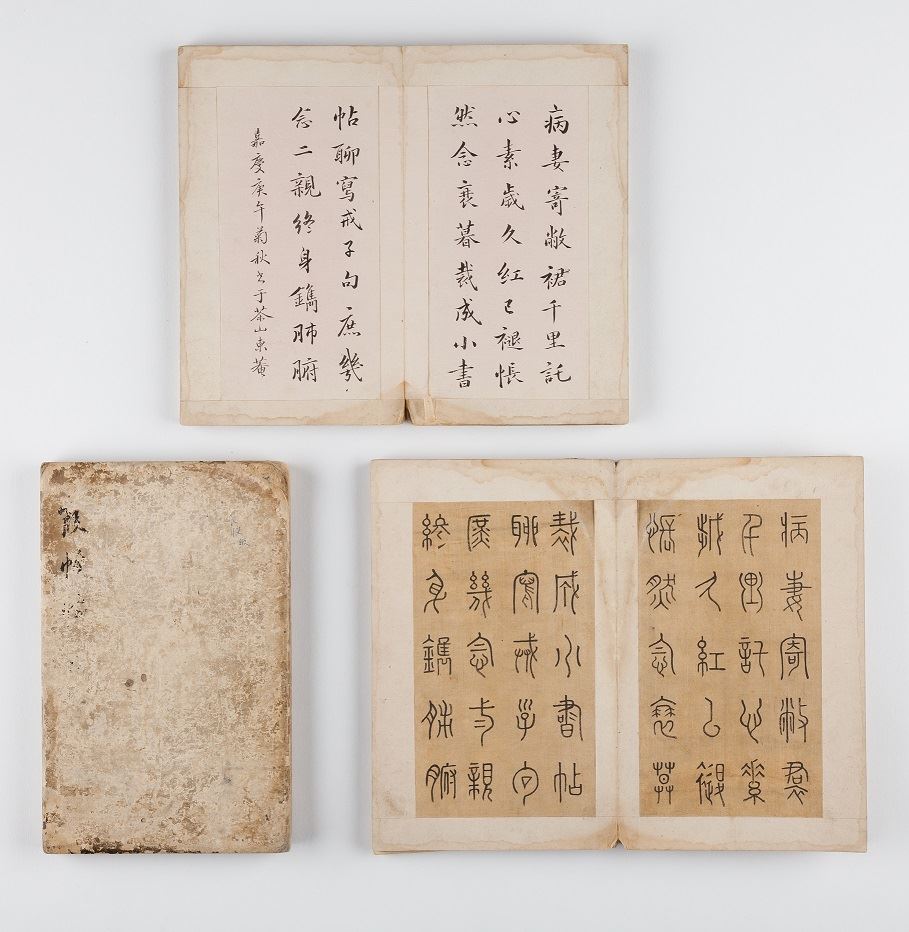 病妻寄敝裙千里託
心素歲久紅已褪悵
然念衰暮裁成小書
帖聊寫戒子句庶幾
念二親終身鐫肺腑
嘉慶庚午菊秋書于茶山東菴
帖
病妻寄敝裙
千里託心素
歲久紅已褪
悵然念衰暮
裁成小書帖
聊寫戒子句
庶幾念二親
終身鐫肺腑